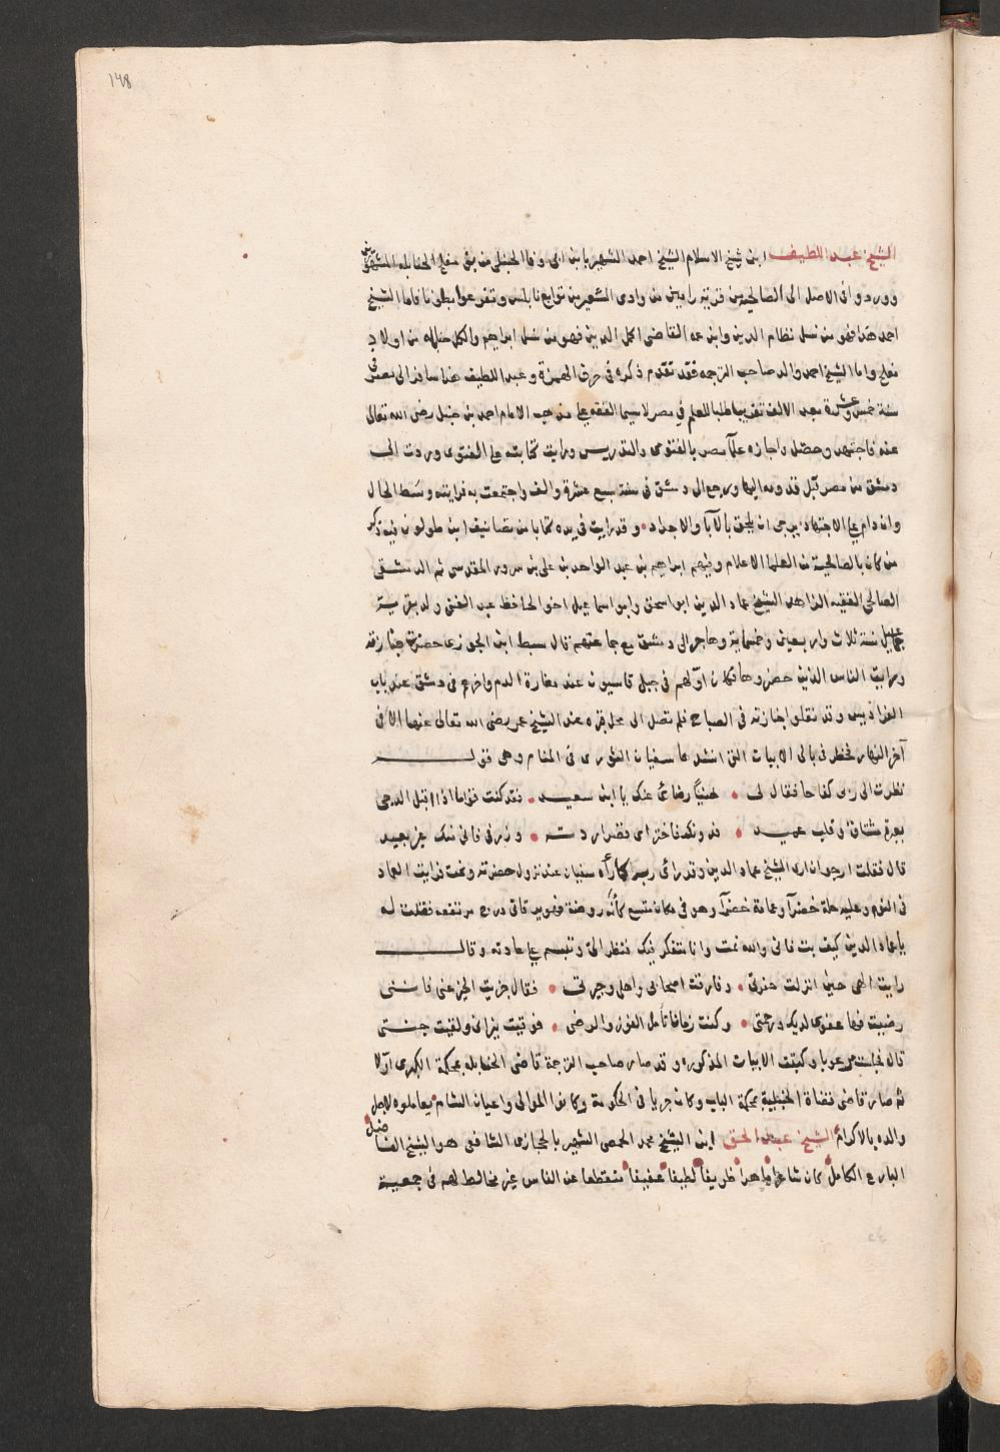 ١٤٨
الشيخ عبد اللطيف ابن شيخ الاسلام الشيخ احمد الشهير بابن ابى وفا الحنبلى من بنى مفلح الحنابلة المشهورين
وورد وان الاصل الى الصالحية من قرية رامين من وادى الشعير من توابع نابلس وتفرعوا بطونا فاما الشيخ
احمد هذا فهو من نسل نظام الدين وابن عمه القاضى اكمل الدين فهو من نسل ابراهيم والكل حنابله من اولاد
مفلح واما الشيخ احمد والد صاحب الترجمه فقد تقدم ذكره فى حرف الهمزة وعبد اللطيف هذا سافر الى مصر فى
سنة خمس عشرة بعد الالف تقريبا طلبا للعلم في مصر لاسيما الفقه على مذهب الامام احمد بن حنبل رضى الله تعالى
عنه فاجتهد وحصل واجازه علما مصر بالفتوى والتدريس ورايت كتابته على الفتوى وردت الى
دمشق من مصر قبل قدومه اليها ورجع الى دمشق فى سنة سبع عشرة والف واجتمعت به فرايته وسط الحال
وان دام على الاجتهاد يرجى ان يلحق بالآبا والاجداد وقد رايت فى يده كتابا من تصانيف ابن طولون فيه ذكر
من كان بالصالحية من العلما الاعلام وفيهم ابراهيم بن عبد الواحد بن على بن سرور المقدسى ثم الدمشقى
الصالحى الفقيه الزاهد الشيخ عماد الدين ابو اسحق وابو اسماعيل اخو الحافظ عبد الغنى ولد بقرية
جماعيل سنة ثلاث واربعين وخمسماية وهاجر الى دمشق مع جماعتهم قال سبط ابن الجوزى حضرت جنازته
ورايت الناس الذين حضروها فكان اولهم فى جبل قاسيون عند مغارة الدم واخرهم فى دمشق عند باب
الفراديس وقد نقلوا جنازته فى الصباح فلم تصل الى محل قبره عند الشيخ عمر رضى الله تعالى عنهما الا فى
آخر النهار فخطر فى بالى الابيات التى انشدها سفيان الثورى فى المنام وهى قوله
نظرت الى ربى كفاحا فقال لى • هنيئا رضائى عنك يا ابن سعيد • فقد كنت قواما اذا اقبل الدجى
بعبرة مشتاق وقلب عميد • فدونك فاختر اى قصر اردته • وزرنى فانى منك غير بعيد
قال فقلت ارجو ان ارى الشيخ عماد الدين وقد راى ربه كما رآه سفيان عند نزول حضرته ونمت فرايت العماد
فى النوم وعليه حلة خضرآ وعمامة خضرآ وهو فى مكان متسع كأنه روضة وهو يرقا فى درج مرتفعه فقلت له
يا عماد الدين كيف بت فانى والله نمت وانا متفكر فيك فنظر الى وتبسم على عادته وقال
رايت الهى حين انزلت حفرتى • وفارقت اصحابى واهلى وجيرتى • فقال جزيت الخير عنى فاننى
رضيت فها عفوى لديك ورحمتى • وكنت زمانا تأمل الفوز والرضى • فوقيت نيرانى ولقيت جنتى
قال فجلست مرعوبا وكتبت الابيات المذكوره وقد صار صاحب الترجمة قاضى الحنابله بمحكمة الكبرى اولا
ثم صار قاضى قضاة الحنبلية بمحكمة الباب وكان جريا فى الحكومة وكانوا الموالى واعيان الشام يعاملوه لاجل
والده بالاكرام الشيخ عبد الحق ابن الشيخ محمد الحمصى الشهير بالحجازى الشافعى هو الشيخ الفاضل
البارع الكامل كان شاعرا ماهرا ظريفا لطيفا عفيفا منقطعا عن الناس غير مخالط لهم فى جمعية